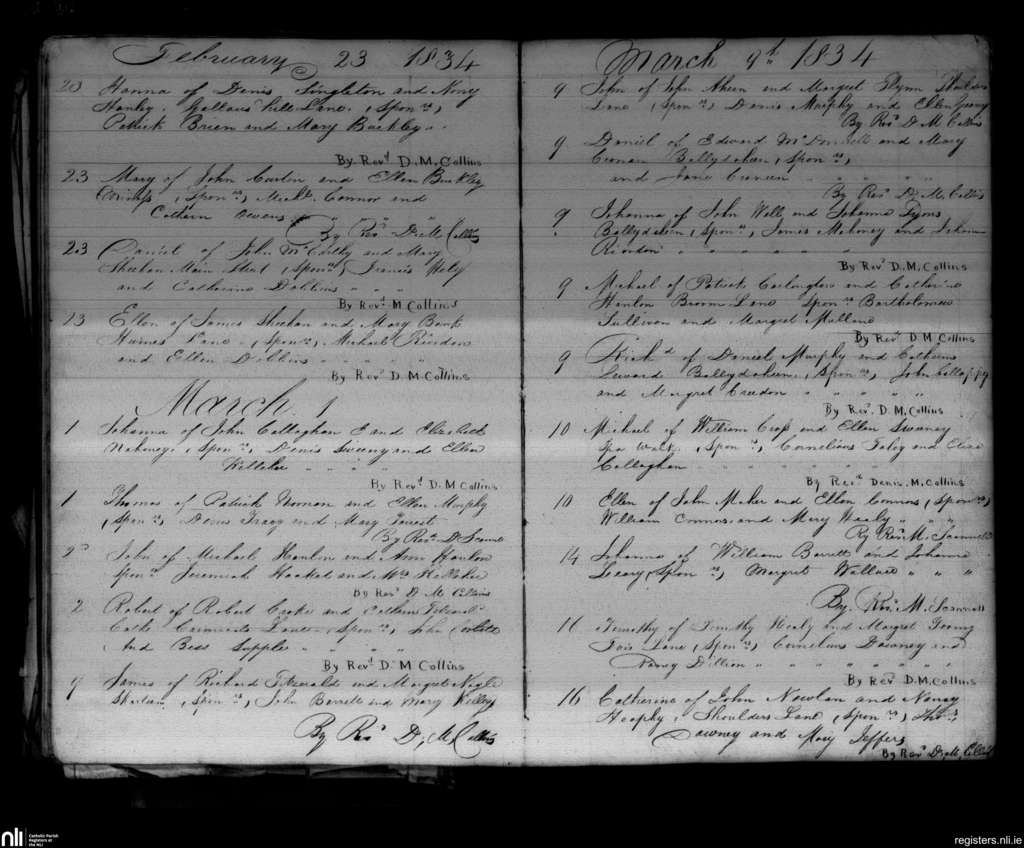 February 23 1834
23 Hanna of Denis Singleton and Nony
Hanley. Gallous Hill Lane. (Spon rs)
Patrick Brien and Mary Buckley
By Revd D. M. Collins
23 Mary of John Curtin and Ellen Buckley
(Spon rs, Michl. Connor and
Cathern Owens
By Revd D. M. Collins
23 Daniel of John McCarthy and Mary
Sheehan Main Street (Spon rs) Francis Hely
and Catherine Dobbins
By Revd. M Collins
23 Ellen of James Sheehan and Mary Bank
Lane. (Spon rs. Michael Riordon
and Ellen Dobbins
By Revd D. M Collins
March 1
1 Johanna of John Callaghan and Elizabeth
Mahoney. (Spon rs, Denis Sweeny and Ellen
Kelleher
By Revd D. M Collins
1 Thomas of Patrick Noonan and Ellen Murphy
(Spon rs, Denis Tracy and Mary
By Revd D.
2 John of Michael Hanlon and Ann Hanlon
Spon rs Jeremiah Hacket and Mrs Kelleher
By Revd D M Collins
2 Robert of Robert Cooke and Cathern
Lane Spon rs, John
And Bess Supple
By Revd D. M Collins
9 James of Richard Fitzerald and Margret Nagle
(Spon rs, John Barrett and Mary Kelley
By Revd D, M, Collins
March 9th 1834
9 John of John Aheen and Margret Flynn Shoulders
Lane (Spon rs, Denis Murphy and Ellen
By Revd D. M. Collins
9 Daniel of Edward McDonnell and Mary
Cronan Ballydaheen, (Spon rs,
and Jane
By Revd D. M. Collins
9 Johanna of John Wells and Johanna
Ballydaheen, (Spon rs, James Mahoney and Johanna
Riordon
By Revd D. M. Collins
9 Michael of Patrick and Catherine
Hanlon Broom Lane Spon rs Bartholomew
Sullivan and Margret
By Revd D. M. Collins
9 Richd of Daniel Murphy and Catherine
Ballydaheen, (Spon rs, John
and Margret Creedon
By Revd. D. M, Collins
10 Michael of William Cross and Ellen Sweney
Spa Walk, (Spon rs, Cornelius Foley and Eliza
Callaghan
By Revd Denis. M. Collins
10 Ellen of John Maher and Ellen Connos, (Spon rs,
William Connos. and Mary Healy
By Revd M. Scannell
14 Johanna of William Barrett and Johanna
Leary (Spon rs, Margret Wallace
By. Revd M. Scannell
16 Timothy of Timothy Healy and Margret
Fair Lane, (Spon rs) Cornelius Dawney and
Nancy Dillion
By Revd D. M. Collins
16 Catherine of John Newlan and Nancy
Heaphy, Shoulders Lane, (Spon rs) Thos.
Dawney and Mary Jeffers
By Revd D. M, Collins
nli
Catholic Parish
Registers at
the NLI
registers.nli.ie